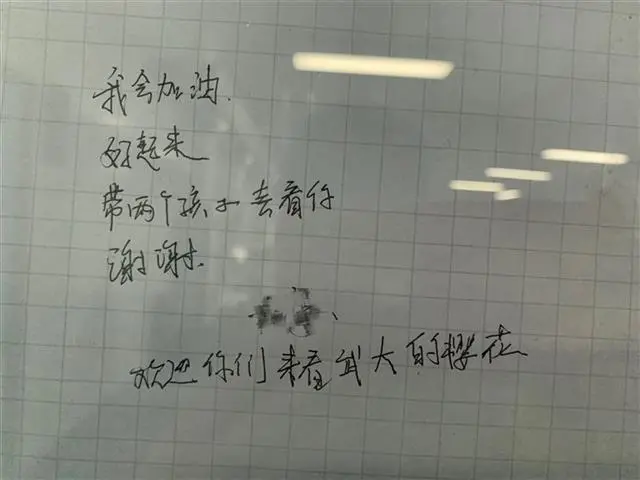 我会加油.
好起来
带两个孩子去看你
谢谢.
欢迎你们来看武大的樱花